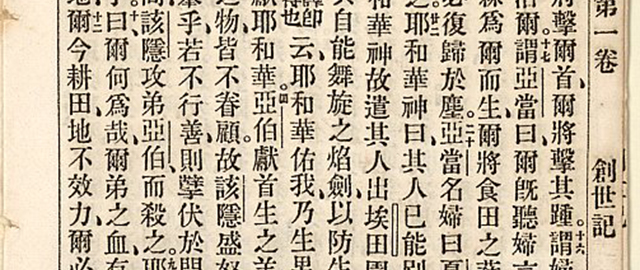 第一卷 創世記
將擊爾首、爾將擊其踵。十六謂婦
治爾。十七謂亞當曰、爾旣聽婦言
棘爲爾而生、爾將食田之蔬
必復歸於塵。二十亞當名婦曰夏
之。廿二耶和華神曰、其人已能別
和華神故遣其人出埃田園
自能舞旋之焰劍、以防生
云、耶和華佑我、乃生男
獻耶和華。四亞伯獻首生之羊
之物、皆不眷顧、故該隱盛怒
乎、若不行善、則孽伏於門
該隱攻弟亞伯而殺之。九耶
曰、爾何爲哉、爾弟之血有
地、爾今耕田、地不效力、爾必